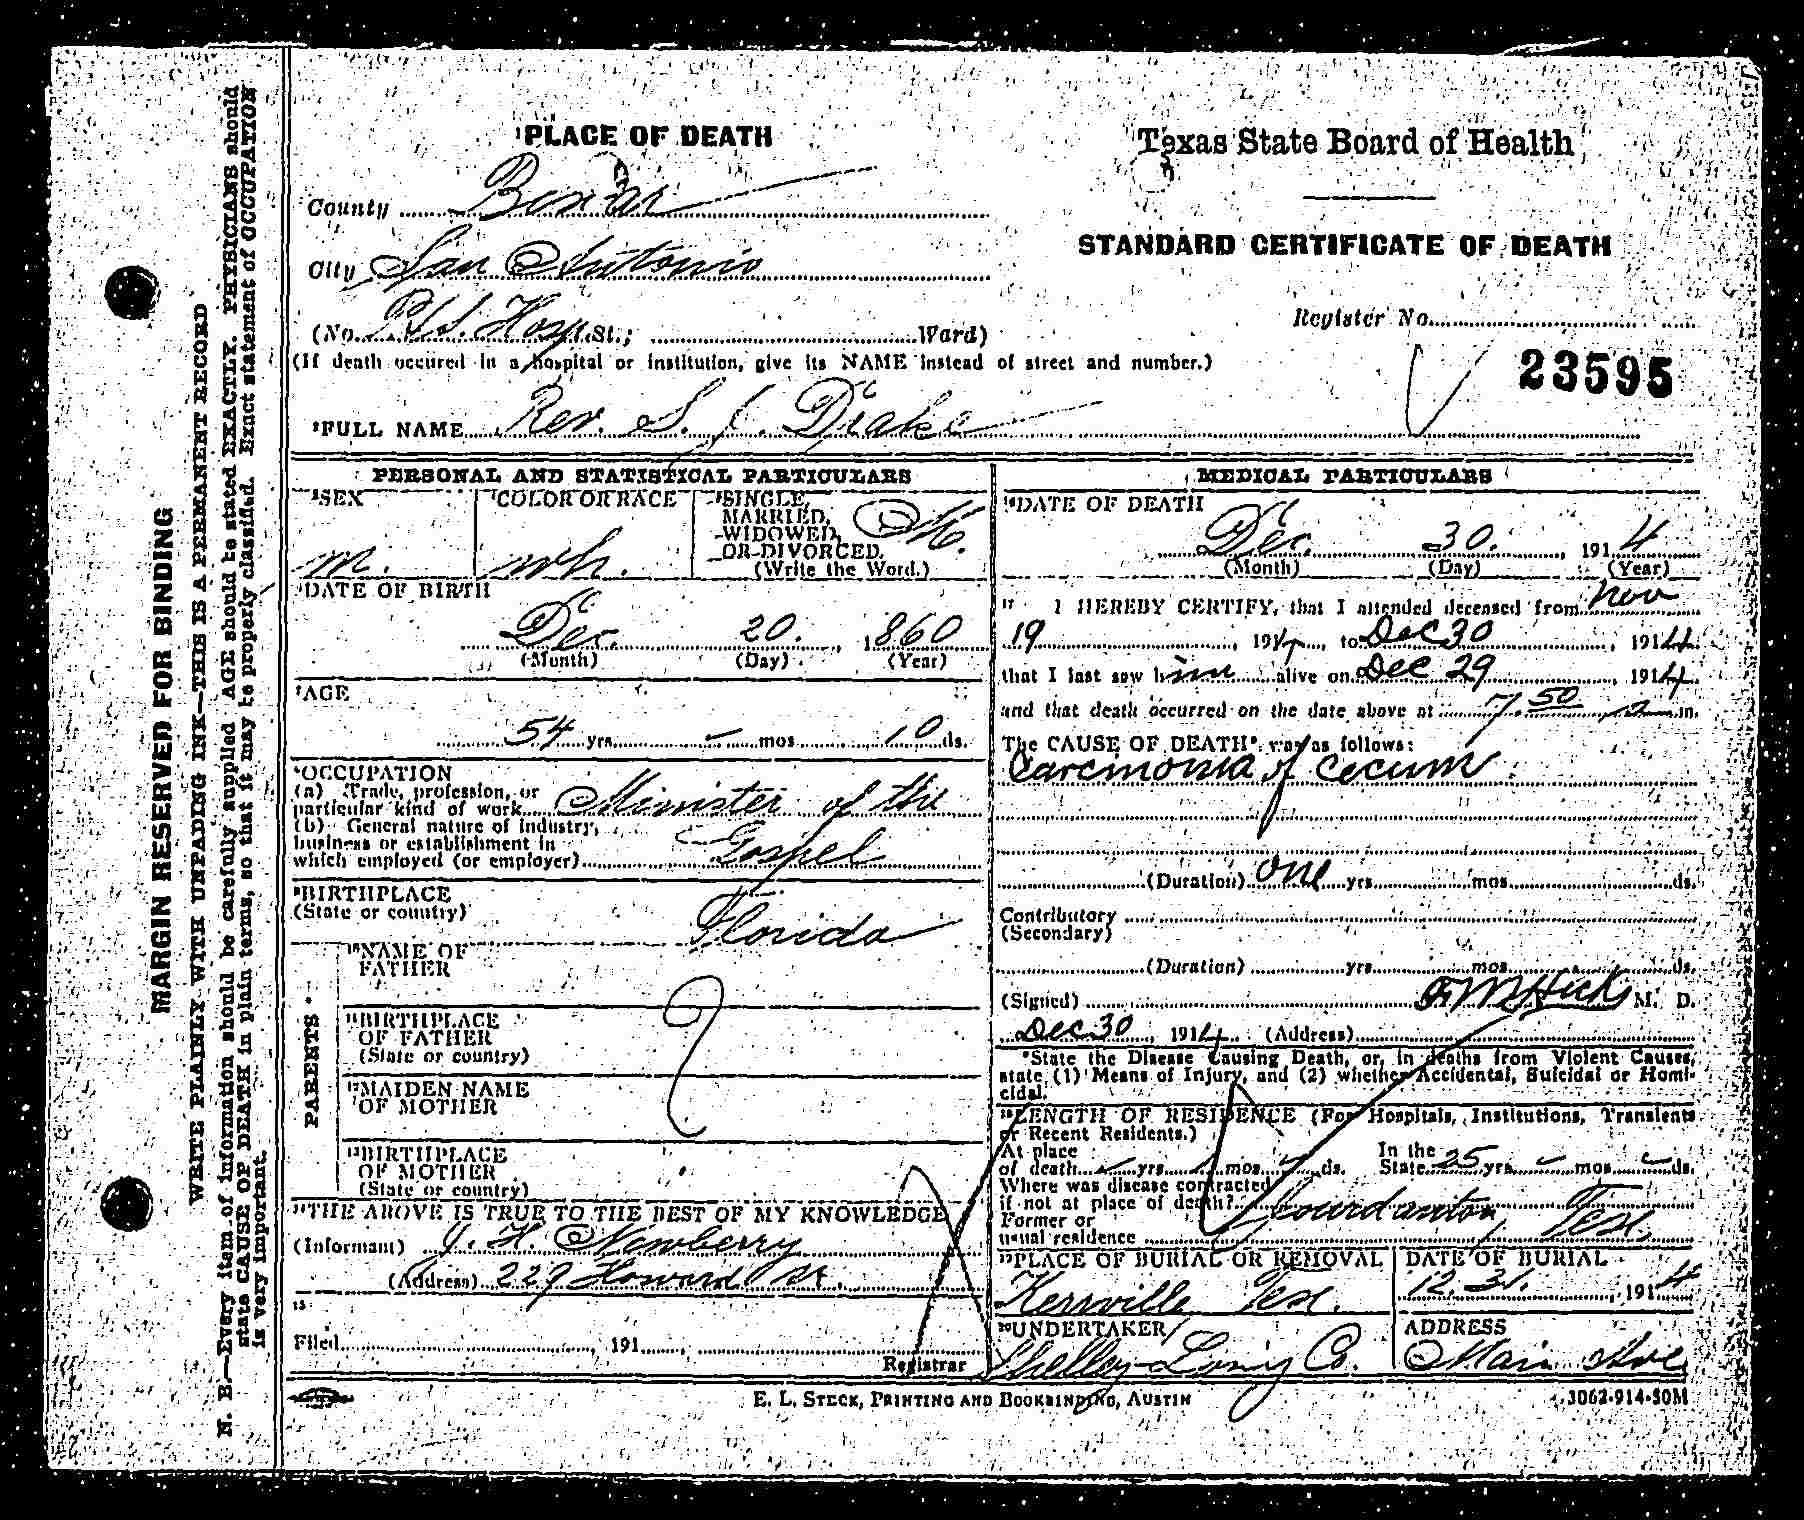 PLACE OF DEATH
County Bexar
City San Antonio
(No. P&S. Hosp. St.; Ward)
(If death occured in a hospital or institution, give its NAME instead of street and number.)
Texas State Board of Health
STANDARD CERTIFICATE OF DEATH
Register No.
23595
FULL NAME Rev. S. J. Drake
PERSONAL AND STATISTICAL PARTICULARS
SEX
m.
COLOR OR RACE
wh.
SINGLE,
MARRIED,
WIDOWED,
OR DIVORCED.
(Write the Word.)
M.
DATE OF BIRTH
Dec. 20. , 1860
(Month) (Day) (Year)
AGE
54 yrs. – mos 10 ds.
OCCUPATION
(a) Trade, profession, or
particular kind of work Minister of the
(b) General nature of industry,
business or establishment in
which employed (or employer) Gospel
BIRTHPLACE
(State or country) Florida
PARENTS
NAME OF
FATHER
BIRTHPLACE
OF FATHER
(State or country)
?
MAIDEN NAME
OF MOTHER
BIRTHPLACE
OF MOTHER
(State or country)
THE ABOVE IS TRUE TO THE BEST OF MY KNOWLEDGE
(Informant) J. H. Newberry
(Address) 229 Howard St.
Filed , 191
Registrar
MEDICAL PARTICULARS
DATE OF DEATH
Dec. 30. , 1914
(Month) (Day) (Year)
17 I HEREBY CERTIFY, that I attended deceased from Nov
19 , 1914, to Dec 30 , 1914
that I last saw him alive on Dec 29 , 1914
and that death occurred on the date above at 7.50 m.
The CAUSE OF DEATH* was as follows:
Carcinoma of Cecum
(Duration) one yrs. mos. ds.
Contributory
(Secondary)
(Duration) yrs. mos. ds.
(Signed) F M Hicks M. D.
Dec 30, 1914 (Address)
*State the Disease Causing Death, or, in deaths from Violent Causes,
state (1) Means of Injury, and (2) whether Accidental, Suicidal or Homi-
cidal.
LENGTH OF RESIDENCE (For Hospitals, Institutions, Transients
or Recent Residents.)
At place
of death yrs. mos. ds. In the State 25 yrs. mos. ds.
Where was disease contracted
if not at place of death? Jourdanton, Tex.
Former or
usual residence
PLACE OF BURIAL OR REMOVAL
Kerrville Tex.
DATE OF BURIAL
12.31. , 1914
20 UNDERTAKER
Shelley-Loring Co.
ADDRESS
Main Ave
E. L. STECK, PRINTING AND BOOKBINDING, AUSTIN
3062-914-50M
MARGIN RESERVED FOR BINDING
WRITE PLAINLY WITH UNFADING INK—THIS IS A PERMANENT RECORD
N. B.—Every item of information should be carefully supplied AGE should be stated EXACTLY. PHYSICIANS should
state CAUSE OF DEATH in plain terms, so that it may be properly classified. Exact statement of OCCUPATION
is very important.